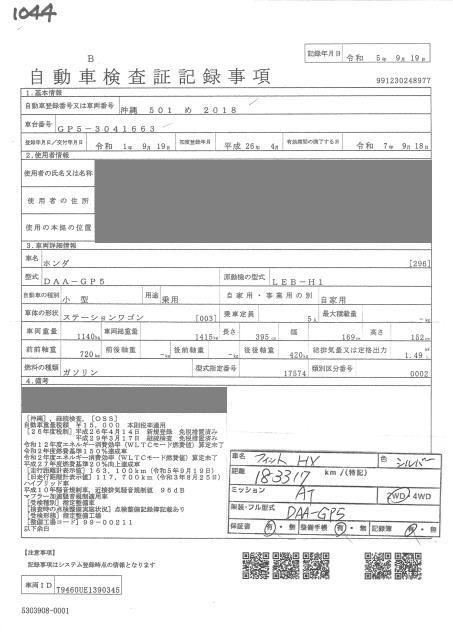 1044
B
記録年月日 令和 5年 9月19日
自動車検査証記録事項
991230248977
1.基本情報
自動車登録番号又は車両番号 沖縄 501 め 2018
車台番号 GP5-3041663
登録年月日/交付年月日 令和 1年 9月19日 初度登録年月 平成26年 4月 有効期間の満了する日 令和 7年 9月18日
2.使用者情報
使用者の氏名又は名称
使用者の住所
使用の本拠の位置
3.車両詳細情報
車名 ホンダ [296]
型式 DAA-GP5 原動機の型式 LEB-H1
自動車の種別 小型 用途 乗用 自家用・事業用の別 自家用
車体の形状 ステーションワゴン [003] 乗車定員 5人 最大積載量 -kg
車両重量 1140kg 車両総重量 1415kg 長さ 395cm 幅 169cm 高さ 152cm
前前軸重 720kg 前後軸重 -kg 後前軸重 -kg 後後軸重 420kg 総排気量又は定格出力 1.49
燃料の種類 ガソリン 型式指定番号 17574 類別区分番号 0002
4.備考
[沖縄],継続検査,[OSS]
自動車重量税額 ¥15,000 本則税率適用
[26年度税制]平成26年4月14日 新規登録 免税措置済み
平成29年3月17日 継続検査 免税措置済み
令和12年度エネルギー消費効率(WLTCモード燃費値)算定未了
令和2年度燃費基準150%達成車
令和2年度エネルギー消費効率(WLTCモード燃費値)算定未了
平成27年度燃費基準20%向上達成車
[走行距離計表示値]163,100km(令和5年9月19日)
[旧走行距離計表示値]117,700km(令和3年8月25日)
ハイブリッド車
平成10年騒音規制車,近接排気騒音規制値 96dB
マフラー加速騒音規制適用車
[受検種別]指定整備車
[検査時の点検整備実施状況]点検整備記録簿記載あり
[受検形態]指定整備工場
[整備工場コード]99-00211
以下余白
車名 フィット HV 色 シルバー
距離 183317 km/(特記)
ミッション AT 2WD 4WD
架装・フル型式 DAA-GP5
保証書 有・無 整備手帳 有・無 記録簿 有・無
【注意事項】
記録事項はシステム登録時点の情報となります
車両ID T9460UE1390345
5303908-0001